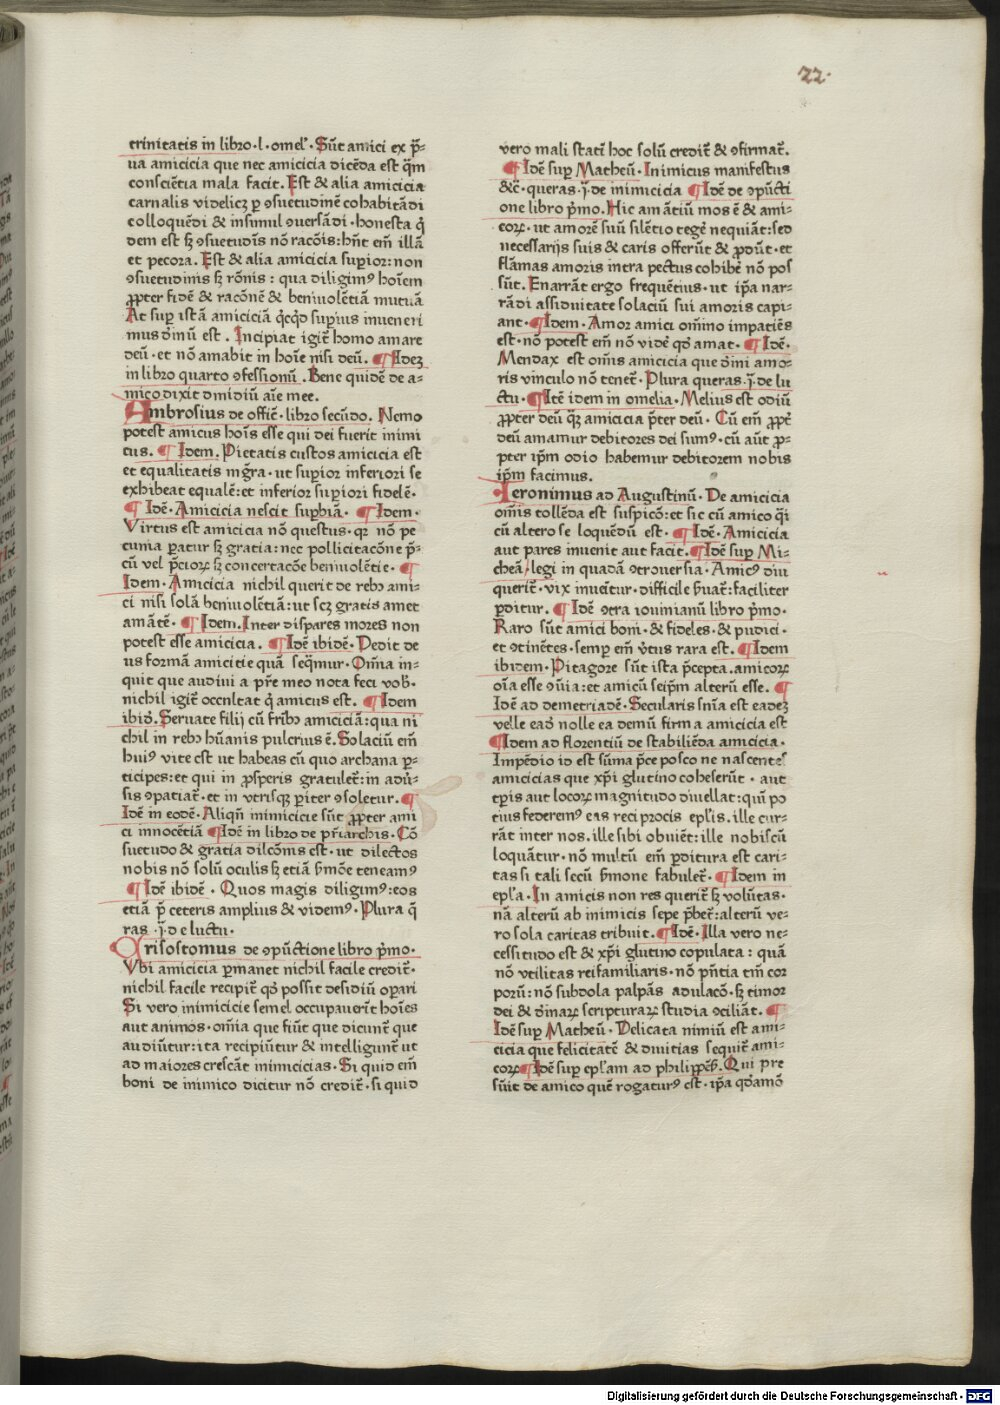 22·
trinitatis in libro·l·omel'·Sūt amici ex p̄-
ua amicicia que nec amicicia dicēda est q̄m
consciētia mala facit. Est & alia amicicia
carnalis videlicz p ꝯsuetudinē cohabitādi
colloquēdi & insimul ꝯuersādi·honesta q̇
dem est sꝫ ꝯsuetudīs nō racōis: hn̄t em̄ illā
et pecora. Est & alia amicicia supior: non
ꝯsuetudinis sꝫ rōnis: qua diligimꝰ hoīem
ꝓpter fidē & racōnē & beniuolētiā mutuā
At sup istā amiciciā q̇cq̇d supius inueneri
mus diuinū est. Incipiat igit̄ homo amare
deū·et nō amabit in hoīe nisi deū. ¶ Idez
in libro quarto ꝯfessionū. Bene quidē de a-
mico dixit dimidiū aīe mee.
Ambrosius de offic̄·libro secūdo. Nemo
potest amicus hoīs esse qui dei fuerit inimi
cus. ¶ Idem. Pietatis custos amicicia est
et equalitatis mḡra·ut supior inferiori se
exhibeat equalē: et inferior supiori fidelē·
¶ Idē·Amicicia nescit supbiā. ¶ Idem·
Virtus est amicicia nō questus·qꝛ nō pe
cunia paratur sꝫ gratia: nec pollicitacōne p̄-
cū vel p̄cioꝝ sꝫ concertacōe beniuolētie. ¶
Idem·Amicicia nichil querit de rebꝰ ami-
ci nisi solā beniuolētiā: ut scz gratis amet
amātē·¶ Idem. Inter dispares mores non
potest esse amicicia. ¶ Idē ibidē·Dedit de
us formā amicitie quā seq̄mur·Om̄ia in-
quit que audiui a pr̄e meo nota feci vob·
nichil igit̄ occultat q̇ amicus est. ¶ Idem
ibiꝫ. Seruate filij cū fribꝰ amiciciā: qua ni
chil in rebꝰ hūanis pulcrius ē. Solaciū em̄
huiꝰ vite est ut habeas cū quo archana p-
ticipes: et qui in ꝓsperis gratulet̄: in aduer
sis ꝯpatiat̄·et in vtrisqꝫ piter ꝯsoletur. ¶
Idē in eodē·Aliqn̄ inimicicie sūt ꝓpter ami
ci innocētiā ¶ Idē in libro de pr̄iarchis·Cō
suetudo & gratia dilcōnis est·ut dilectos
nobis nō solū oculis sꝫ etiā hmōe teneamꝰ
¶ Idē ibidē·Quos magis diligimꝰ: eos
etiā p̄ ceteris amplius & videmꝰ·Plura q̄
ras·j·de luctu·
Crisostomus de ꝯpūctione libro p̄mo·
Vbi amicicia pmanet nichil facile credit̄·
nichil facile recipit̄ qꝫ possit desidiū opari
Si vero inimicicie semel occupauerit hoīes
aut animos·om̄ia que fiūt que dicunt̄ que
audiūtur: ita recipiūtur & intelligunt̄ ut
ad maiores crescāt inimicicias. Si quid em̄
boni de inimico dicitur nō credit̄·si quid
vero mali statī hoc solū credit̄ & ꝯfirmat̄.
¶ Idē sup Matheū·Inimicus manifestus
&c̄·queras·j·de inimicicia ¶ Idē de ꝯpūcti
one libro p̄mo. Hic amātiū mos ē & ami-
coꝝ·ut amorē suū silētio tegē nequiāt: sed
necessarijs suis & caris offerūt & ꝓdūt·et
flāmas amoris intra pectus cohibē nō pos
sūt. Enarrāt ergo frequētius·ut ip̄a nar-
rādi assiduitate solaciū sui amoris capi-
ant·¶ Idem·Amor amici om̄ino impatiēs
est·nō potest em̄ nō vidē qꝫ amat·¶ Idē·
Mendax est om̄is amicicia que diuini amo-
ris vinculo nō tenet̄·Plura queras·j·de lu
ctu·¶ Itē idem in omelia·Melius est odiū
ꝓpter deū qꝫ amicicia p̄ter deū·Cū em̄ ꝓpt̄
deū amamur debitores dei sumꝰ·cū aūt ꝓ-
pter ip̄m odio habemur debitorem nobis
ip̄m facimus.
Ieronimus ad Augustinū·De amicicia
om̄is tollēda est suspicō: et sic cū amico q̄i
cū altero se loquēdū est·¶ Idē·Amicicia
aut pares inuenit aut facit. ¶ Idē sup Mi-
cheā legi in quadā ꝯtrouersia·Amicꝰ diu
querit̄·vix inuēitur·difficile seruat̄: faciliter
pditur. ¶ Idē ꝯtra iouinianū libro p̄mo·
Raro sūt amici boni·& fideles·& pudici·
et ꝯtinētes·semp em̄ v̄tus rara est. ¶ Idem
ibidem·Pitagore sūt ista p̄cepta. amicoꝝ
oīa esse ꝯuīa: et amicū seip̄m alterū esse. ¶
Idē ad demetriadē·Secularis sn̄ia est eadeꝫ
velle eadꝫ nolle ea demū firma amicicia est
¶ Idem ad florentiū de stabiliēda amicicia·
Impēdio id est sūma p̄ce posco ne nascentes
amicicias que xp̄i glutino coheserūt·aut
tpis aut locoꝝ magnitudo diuellat: quī po
tius federemꝰ eas reciprocis ep̄lis. ille cur-
rāt inter nos. ille sibi obuiēt: ille nobiscū
loquātur·nō multū em̄ pditura est cari-
tas si tali seciū hmone fabulet̄·¶ Idem in
ep̄la·In amicis non res querit̄ sꝫ volūtas·
nā alterū ab inimicis sepe p̄bet̄: alterū ve-
ro sola caritas tribuit. ¶ Idē·Illa vero ne-
cessitudo est & xp̄i glutino copulata: quā
nō vtilitas reifamiliaris·nō p̄ntia tm̄ cor
porū: nō subdola palpās adulacō·sꝫ timor
dei & diuinaꝝ scripturaꝝ studia ꝯciliāt. ¶
Idē sup Matheū·Delicata nimiū est ami-
cicia que felicitatē & diuitias sequit̄ ami-
coꝝ ¶ Idē sup ep̄lam ad philippēses. Qui pre
sūit de amico quē rogaturꝰ est·ip̄a qdāmō
Digitalisierung gefördert durch die Deutsche Forschungsgemeinschaft · DFG